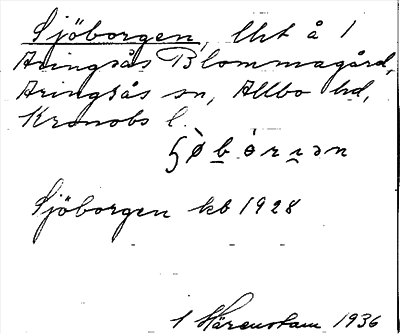 Sjöborgen, lht å 1
Aringsås Blommagård,
Aringsås sn, Allbo hd,
Kronobs l.
Sjöborgen kb 1928
1 Härenstam 1936